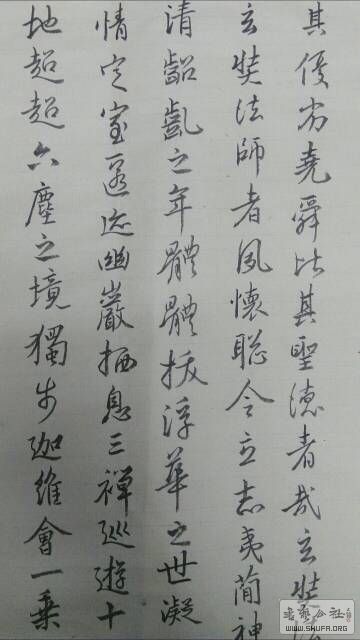 其優劣堯舜比其聖德者哉玄奘法
玄奘法師者夙懷聰令立志夷簡神
清齠齔之年體體拔浮華之世凝
情定室匿迹幽巖栖息三禪巡遊十
地超超六塵之境獨步迦維會一乘
書藝公社
WWW.SHUFA.ORG